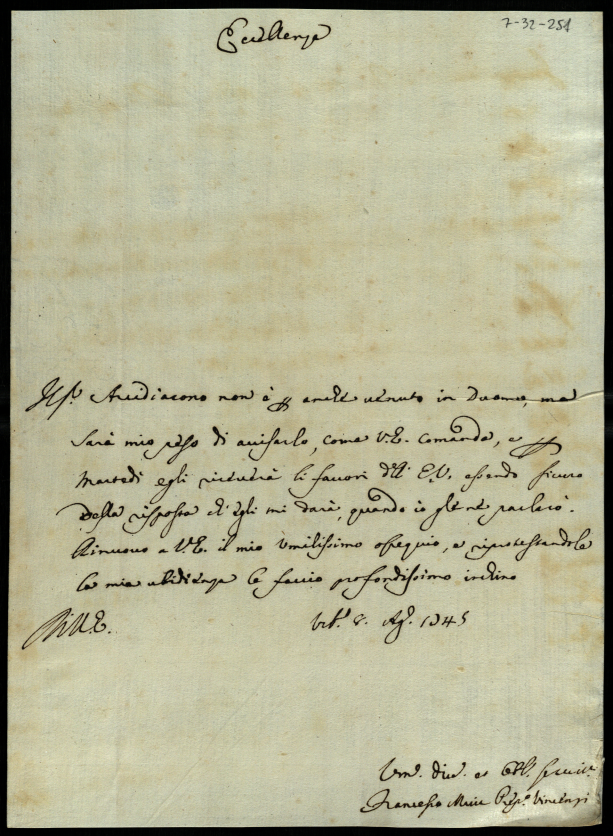 7-32-251
Eccellenza
Arcidiacono non è p anche venuto in Duomo, ma
sarà mio peso di avisarlo, come V.E. comanda, e p
Martedì egli riceverà li favori dell' E.V. essendo sicuro
della risposta ch'egli mi darà, quando io gle ne parlarò.
Rinuovo a V.E. il mio umilissimo ossequio, e riprotestandole
la mia ubidienza le faccio profondissimo inchino
Di V.E. 8. Ag. 1745
Um. div. et Obl. Servit.
Francesco Prep. Vincenzi